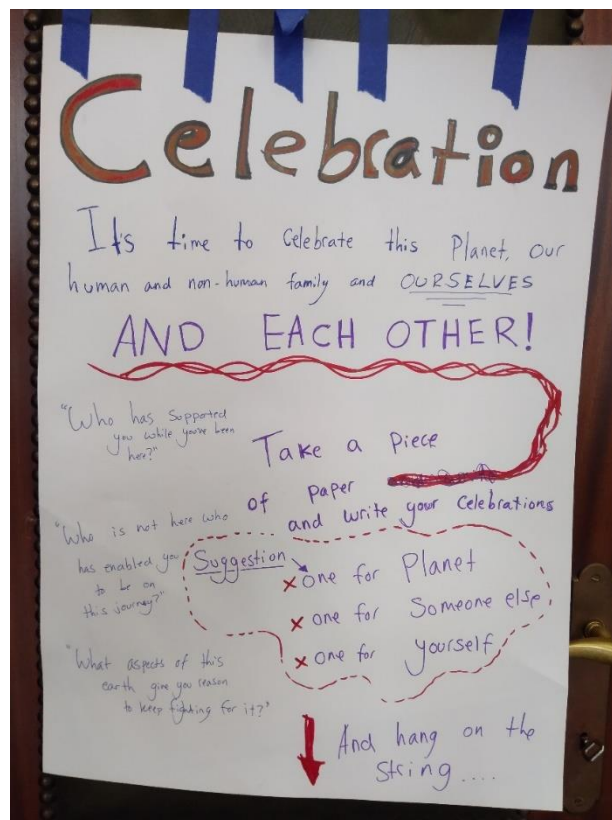 Celebration
It's time to Celebrate this Planet, our
human and non-human family and OURSELVES
AND EACH OTHER!
"Who has Supported
you while you've been
here?"
Take a piece
of paper
and write your Celebrations
"Who is not here who
has enabled you
to be on
this journey?"
Suggestion
x one for Planet
x one for Someone else
x one for yourself
"What aspects of this
earth give you reason
to keep fighting for it?"
And hang on the
String....